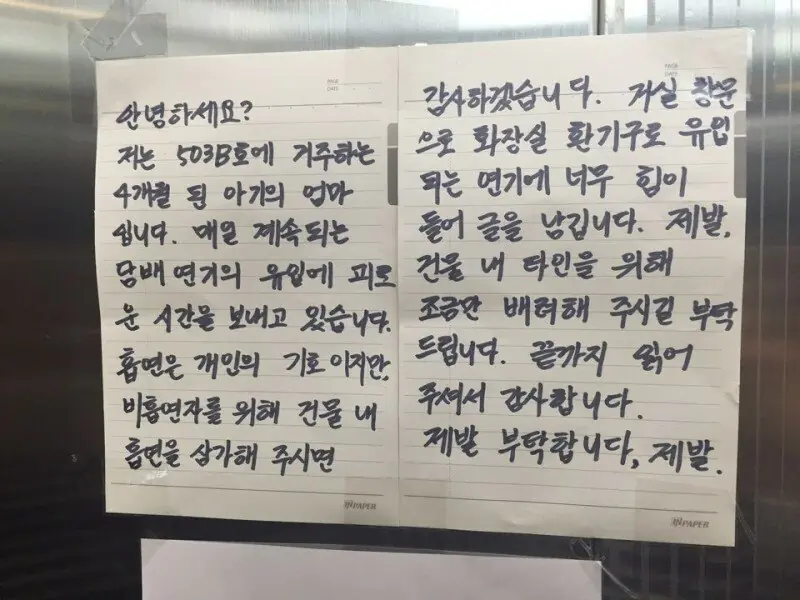 PAGE
DATE
안녕하세요?
저는 503B호에 거주하는
4개월 된 아기의 엄마
입니다. 매일 계속되는
담배 연기의 유입에 괴로
운 시간을 보내고 있습니다.
흡연은 개인의 기호이지만,
비흡연자를 위해 건물 내
흡연을 삼가해 주시면
PAPER
PAGE
DATE
감사하겠습니다. 거실 창문
으로 화장실 환기구로 유입
되는 연기에 너무 힘이
들어 글을 남깁니다. 제발,
건물 내 타인을 위해
조금만 배려해 주시길 부탁
드립니다. 끝까지 읽어
주셔서 감사합니다.
제발 부탁합니다, 제발.
PAPER